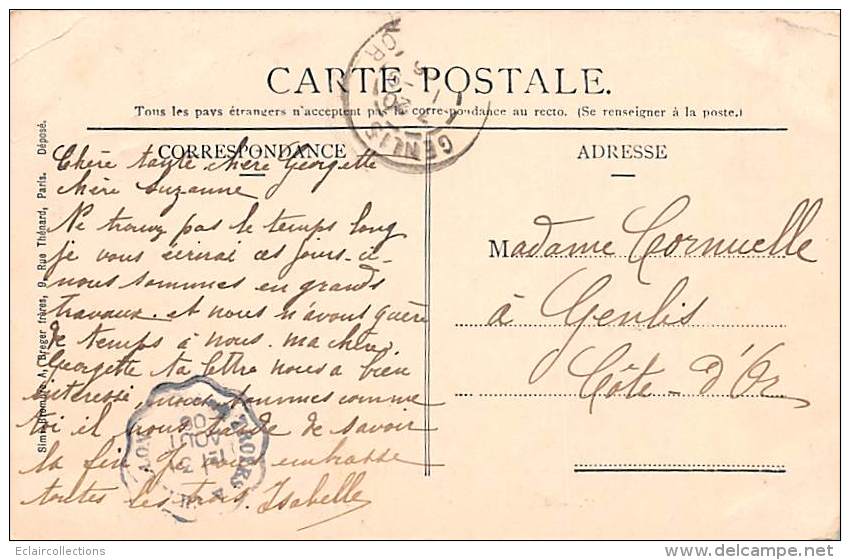 CARTE POSTALE.
Tous les pays étrangers n'acceptent pas la correspondance au recto. (Se renseigner à la poste.)
CORRESPONDANCE
ADRESSE
Simili-Bromure A. Breger frères, 9, Rue Thénard, Paris. Déposé.
Chère tante chère Georgette
chère Suzanne
Ne trouvez pas le temps long
je vous écrirai ces jours-ci
nous sommes en grands
travaux. et nous n'avons guère
de temps à nous. ma chère
Georgette ta lettre nous a bien
interessé, nous sommes comme
toi il nous tarde de savoir
la fin. Je vous embrasse
toutes les trois. Isabelle
Madame Cornuelle
à Genlis
Côte-d'Or
GENLIS
AOUT
06
Eclaircollections
www.delcampe.net